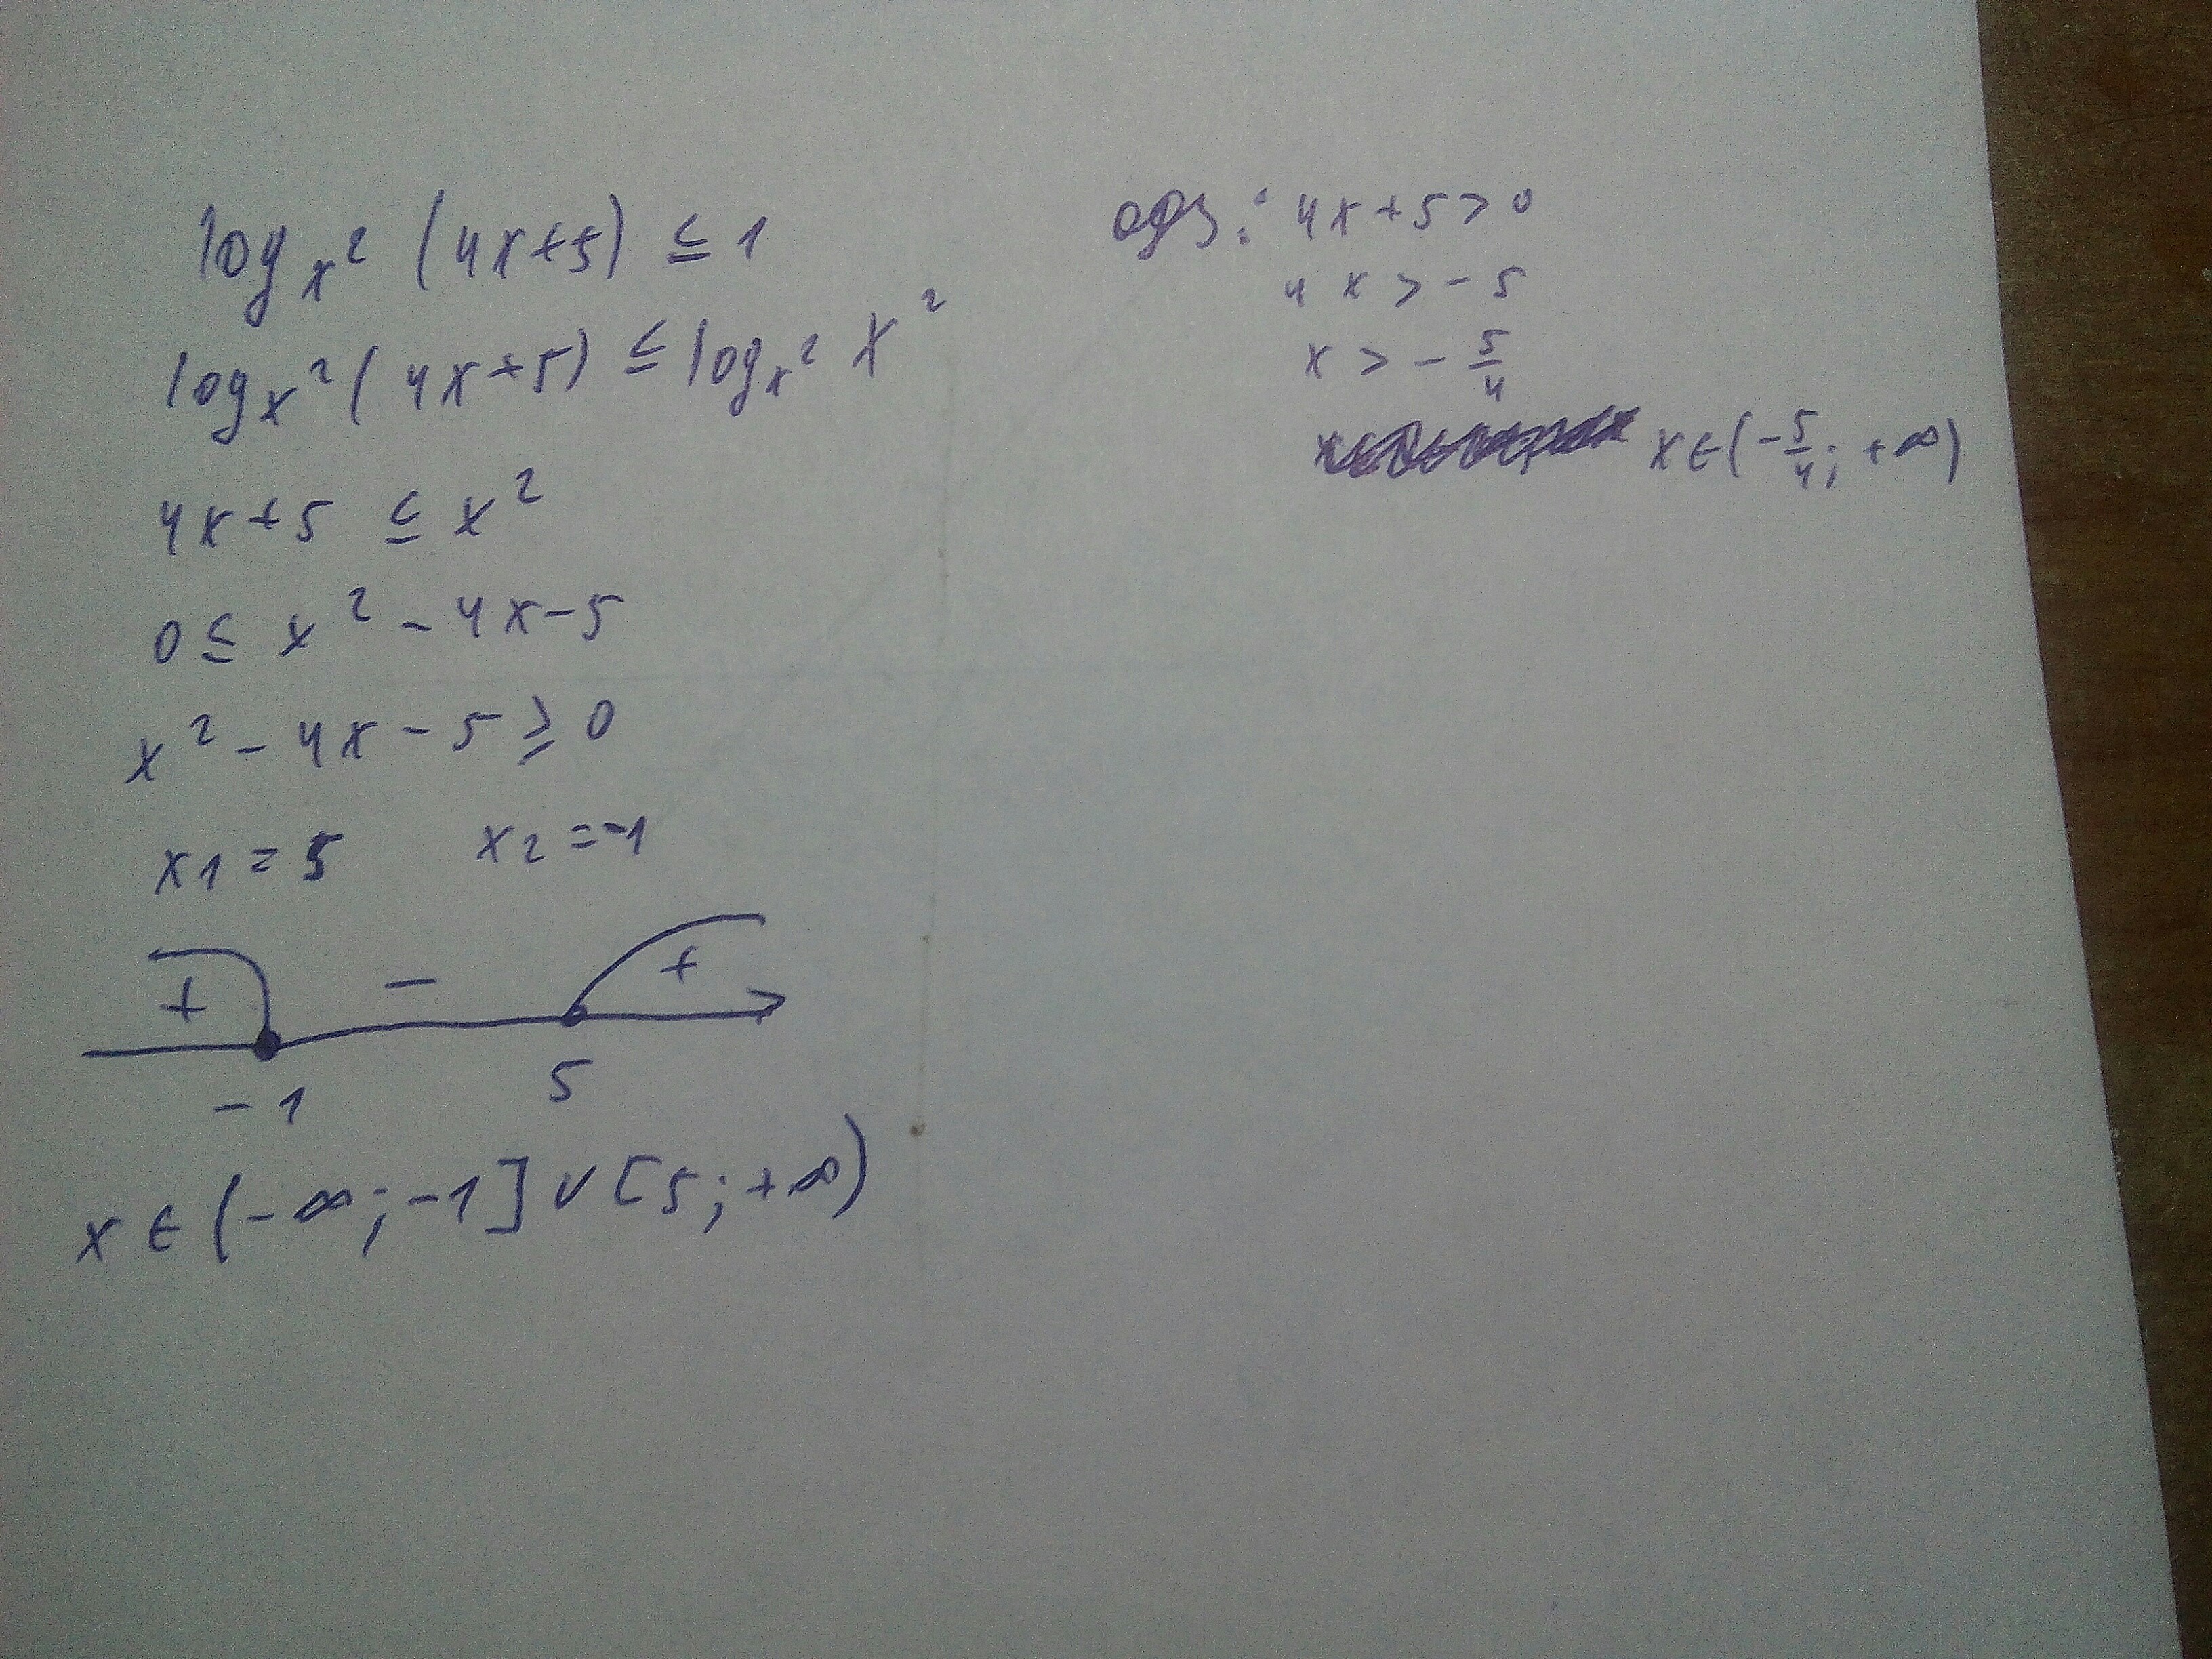 log x² (4x+5) ≤ 1
log x² (4x+5) ≤ log x² x²
4x+5 ≤ x²
0 ≤ x² - 4x - 5
x² - 4x - 5 ≥ 0
x1 = 5 x2 = -1
+ - +
-1 5
x ∈ (-∞; -1] ∪ [5; +∞)
одз: 4x+5 > 0
4x > -5
x > - 5/4
x ∈ (-5/4; +∞)